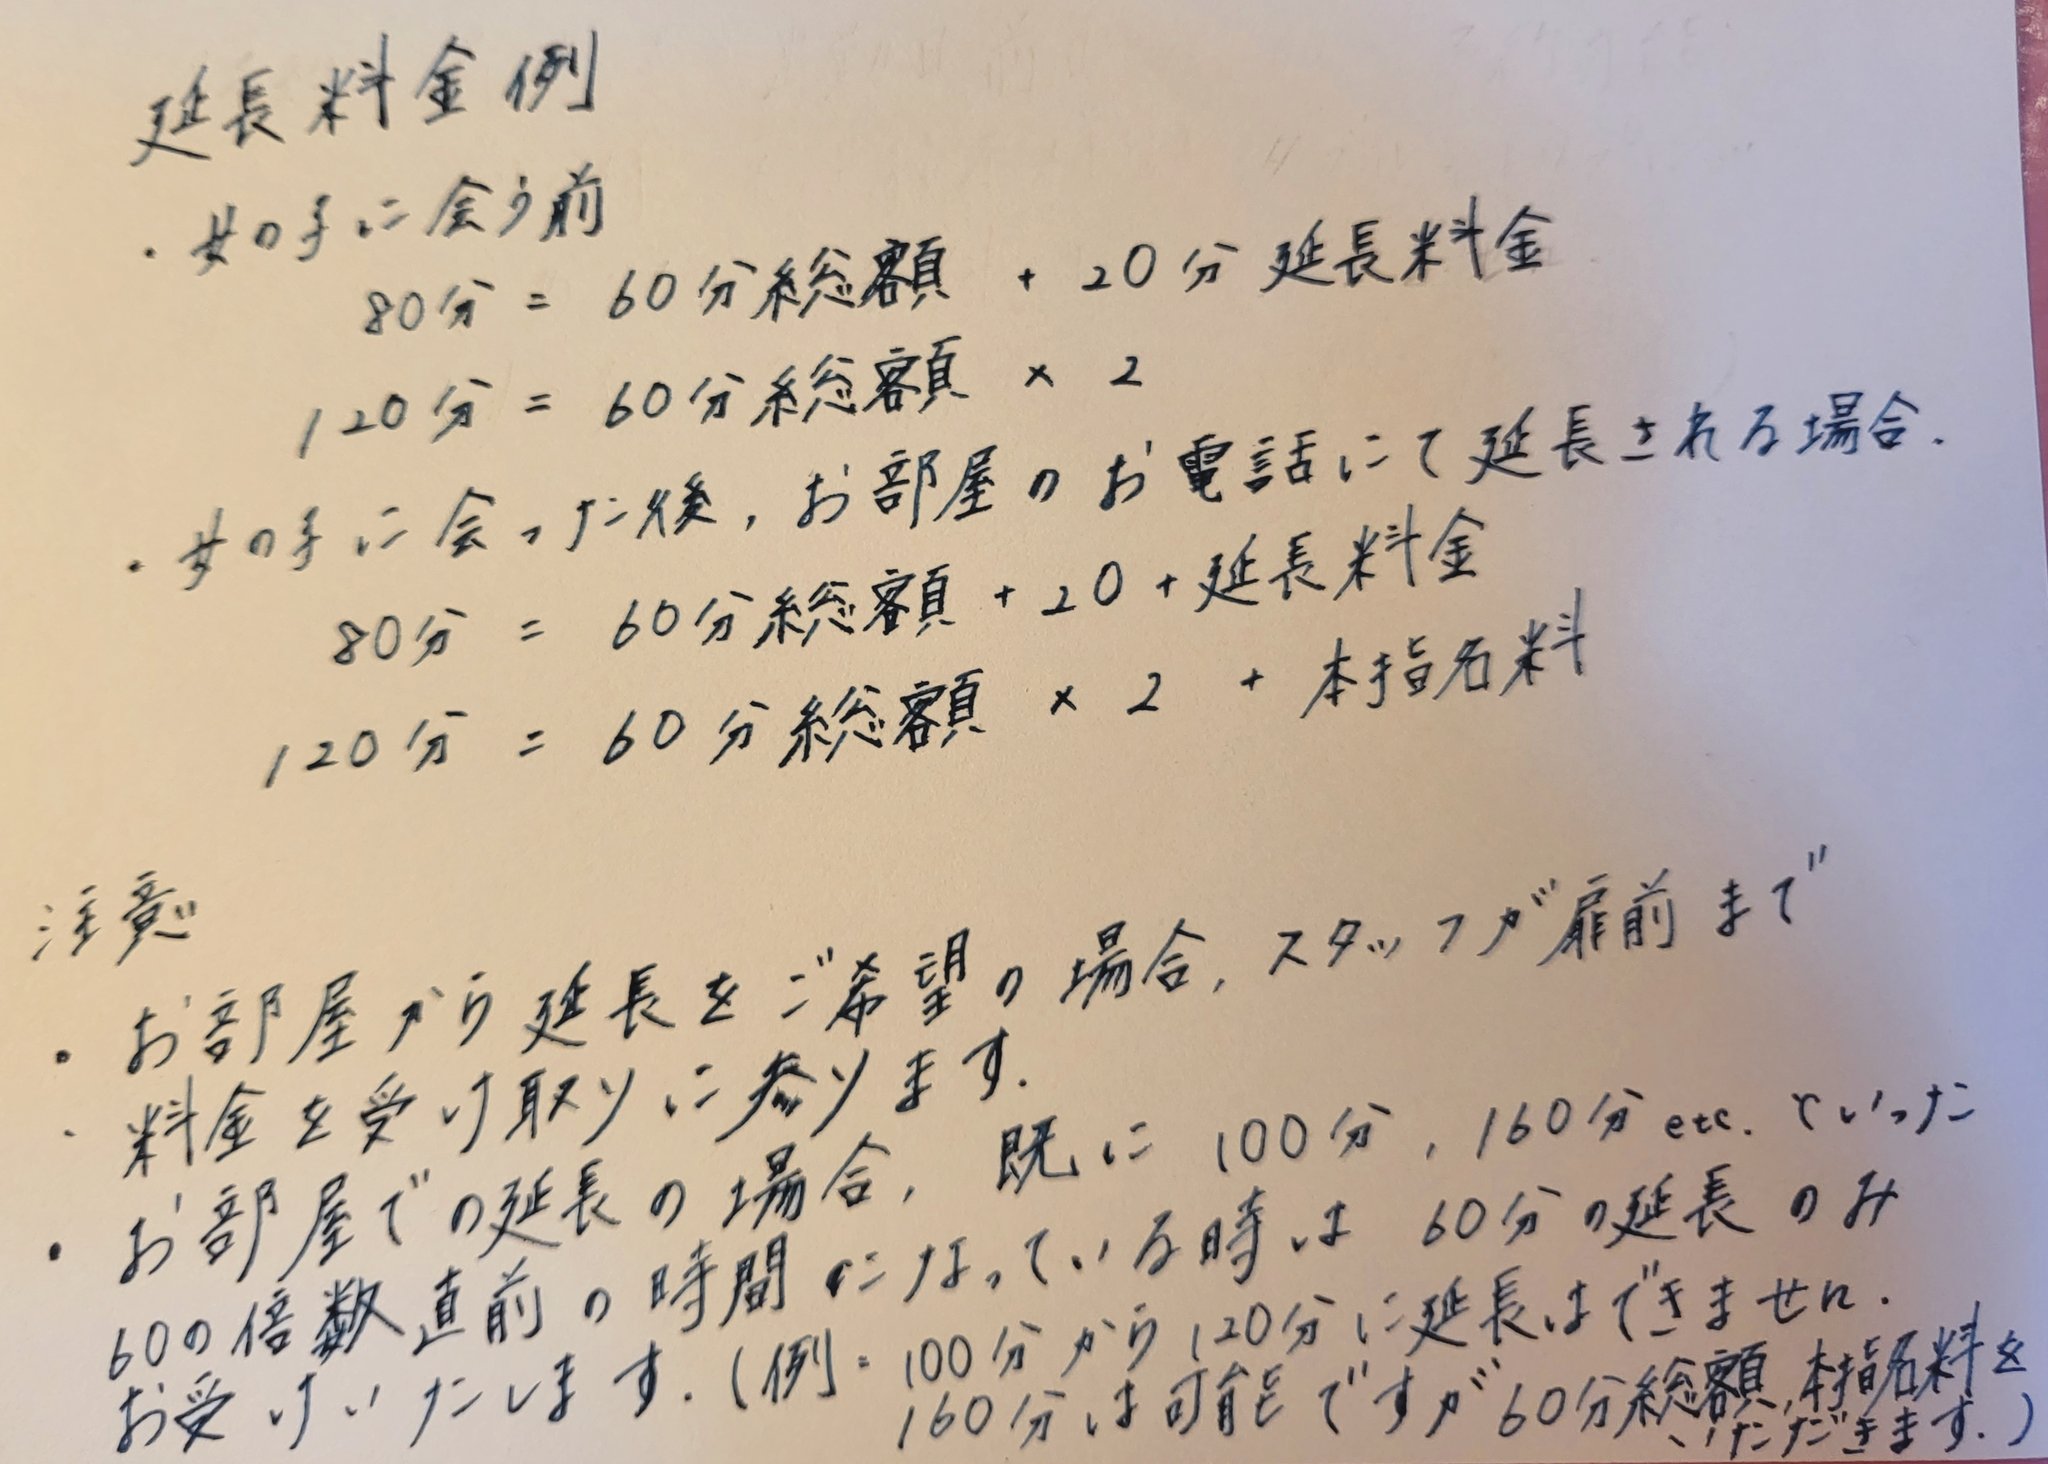 延長料金例
・女の子に会う前
80分 = 60分総額 + 20分延長料金
120分 = 60分総額 × 2
・女の子に会った後, お部屋のお電話にて延長される場合.
80分 = 60分総額 + 20 + 延長料金
120分 = 60分総額 × 2 + 本指名料
注意
・お部屋から延長をご希望の場合, スタッフが扉前まで
料金を受け取りに参ります.
・お部屋での延長の場合, 既に 100分, 160分 etc. といった
60の倍数直前の時間になっている時は 60分の延長のみ
お受けいたします. (例: 100分から120分に延長はできません.
160分は可能ですが60分総額, 本指名料を
いただきます.)